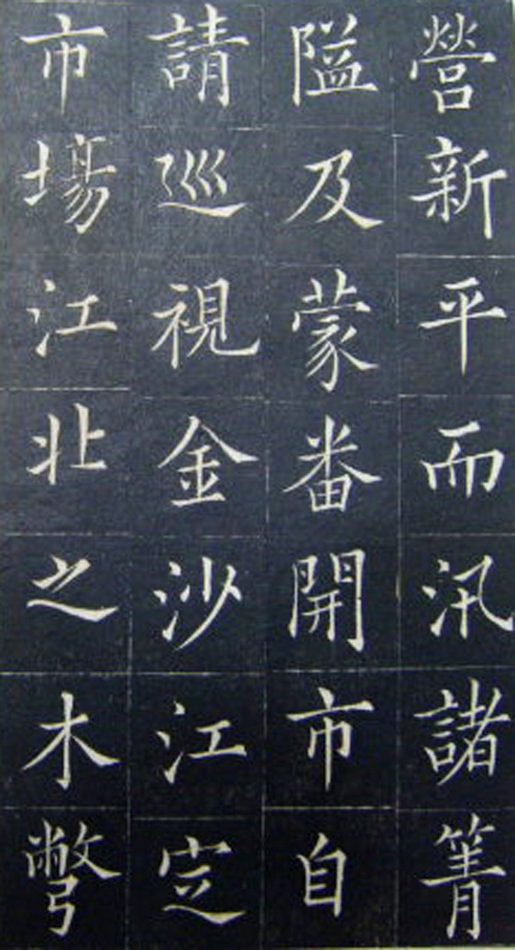 營新平而汛諸箐
隘及蒙番開市自
請巡視金沙江定
市塲江北之木彆